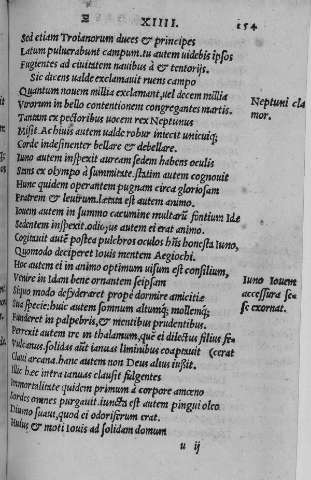 Ξ XIIII. 154
Sed etiam Troianorum duces & principes
Latum puluerabunt campum. tu autem uidebis ipsos
Fugientes ad ciuitatem nauibus à & tentorijs.
Sic dicens ualde exclamauit ruens campo
Quantum nouem millia exclamant, uel decem millia
Virorum in bello contentionem congregantes martis.
Neptuni cla
mor.
Tantam ex pectoribus uocem rex Neptunus
Misit. Achiuis autem ualde robur iniecit unicuiq;
Corde indesinenter bellare & debellare.
Iuno autem inspexit auream sedem habens oculis
Stans ex olympo à summitate. statim autem cognouit
Hunc quidem operantem pugnam circa gloriosam
Fratrem & leuirum. lætata est autem animo.
Iouem autem in summo cacumine multarū fontium Idæ
Sedentem inspexit. odiosus autem ei erat animo.
Cogitauit autē postea pulchros oculos hñs honesta Iuno,
Quomodo deciperet Iouis mentem Aegiochi.
Hoc autem ei in animo optimum uisum est consilium,
Iuno Iouem
accessura se
se exornat.
Venire in Idam bene ornatem seipsam
Siquo modo desyderaret prope dormire amicitiæ
Sua specie: huic autem somnum altumq; mollemq;
Funderet in palpebris, & mentibus prudentibus.
Perrexit autem ire in thalamum, quē ei dilectus filius fe-
Vulcanus. solidas aūt ianuas liminibus coaptauit (cerat
Claui arcana. hanc autem non Deus alius iussit.
Illic hæc intra ianuas clausit fulgentes
Immortalitate quidem primum à corpore amœno
Sordes omnes purgauit. iuncta est autem pingui oleo
Diuino suaui, quod ei odoriferum erat.
Huius & moti Iouis ad solidam domum
u ij